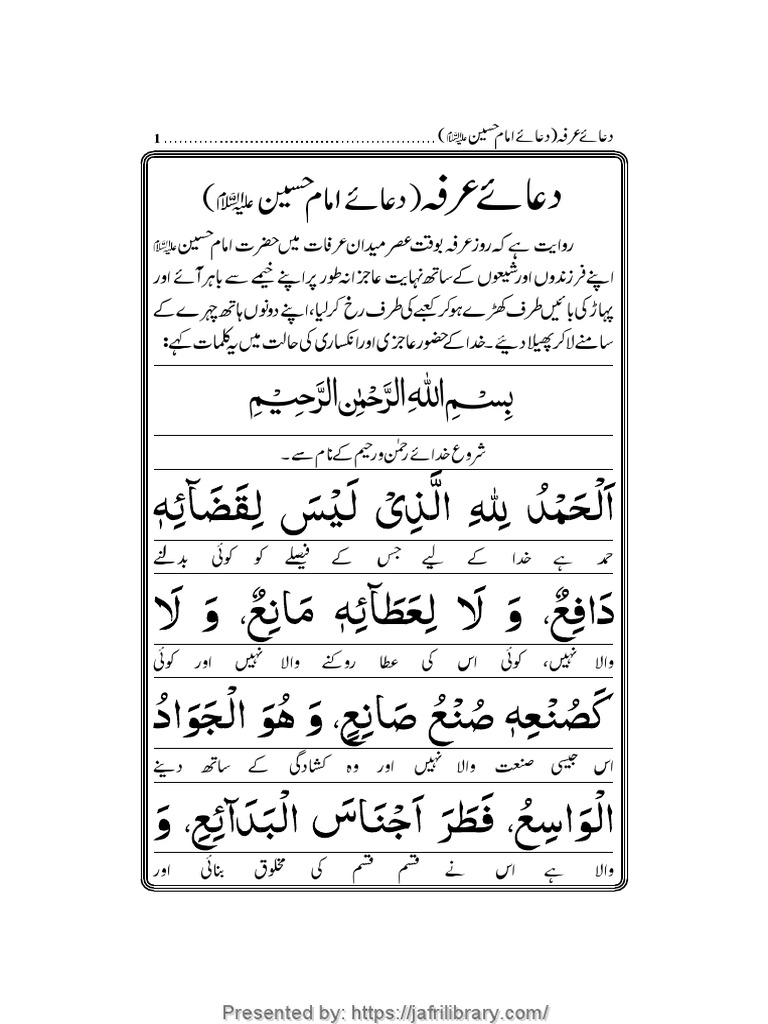 دعائے عرفہ (دعائے امام حسین علیہ السلام) ........................................................ 1
دعائے عرفہ (دعائے امام حسین علیہ السلام)
روایت ہے کہ روز عرفہ بوقت عصر میدان عرفات میں حضرت امام حسین علیہ السلام
اپنے فرزندوں اور شیعوں کے ساتھ نہایت عاجزانہ طور پر اپنے خیمے سے باہر آئے اور
پہاڑ کی بائیں طرف کھڑے ہو کر کعبے کی طرف رخ کر لیا، اپنے دونوں ہاتھ چہرے کے
سامنے لا کر پھیلا دیئے۔ خدا کے حضور عاجزی اور انکساری کی حالت میں یہ کلمات کہے:
بِسْمِ اللهِ الرَّحْمٰنِ الرَّحِيْمِ
شروع خدائے رحمٰن و رحیم کے نام سے۔
اَلْحَمْدُ لِلهِ الَّذِىْ لَيْسَ لِقَضَآئِهٖ
حمد ہے خدا کے لیے جس کے فیصلے کو کوئی بدلنے
دَافِعٌ، وَ لَا لِعَطَآئِهٖ مَانِعٌ، وَ لَا
والا نہیں، کوئی اس کی عطا روکنے والا نہیں اور کوئی
كَصُنْعِهٖ صُنْعُ صَانِعٍ، وَ هُوَ الْجَوَادُ
اس جیسی صنعت والا نہیں اور وہ کشادگی کے ساتھ دینے
الْوَاسِعُ، فَطَرَ اَجْنَاسَ الْبَدَآئِعِ، وَ
والا ہے اس نے قسم قسم کی مخلوق بنائی اور
Presented by: https://jafrilibrary.com/